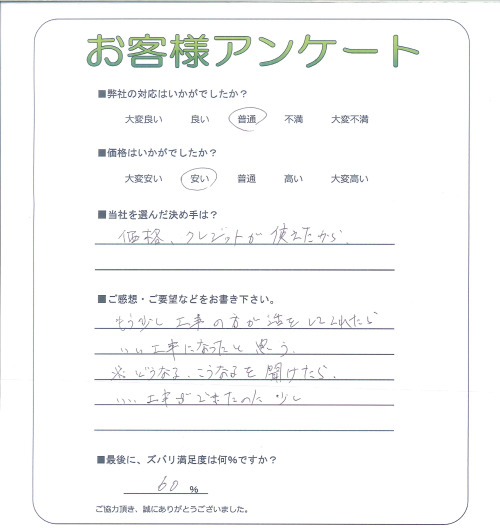 お客様アンケート
■弊社の対応はいかがでしたか？
大変良い 良い 普通 不満 大変不満
■価格はいかがでしたか？
大変安い 安い 普通 高い 大変高い
■当社を選んだ決め手は？
価格、クレジットが使えたから、
■ご感想・ご要望などをお書き下さい。
もう少し工事の方が話をしてくれたら
いい工事になったと思う、
※どうなる、こうなるを聞けたら、
いい工事ができたのに少し
■最後に、ズバリ満足度は何%ですか？
60 %
ご協力頂き、誠にありがとうございました。